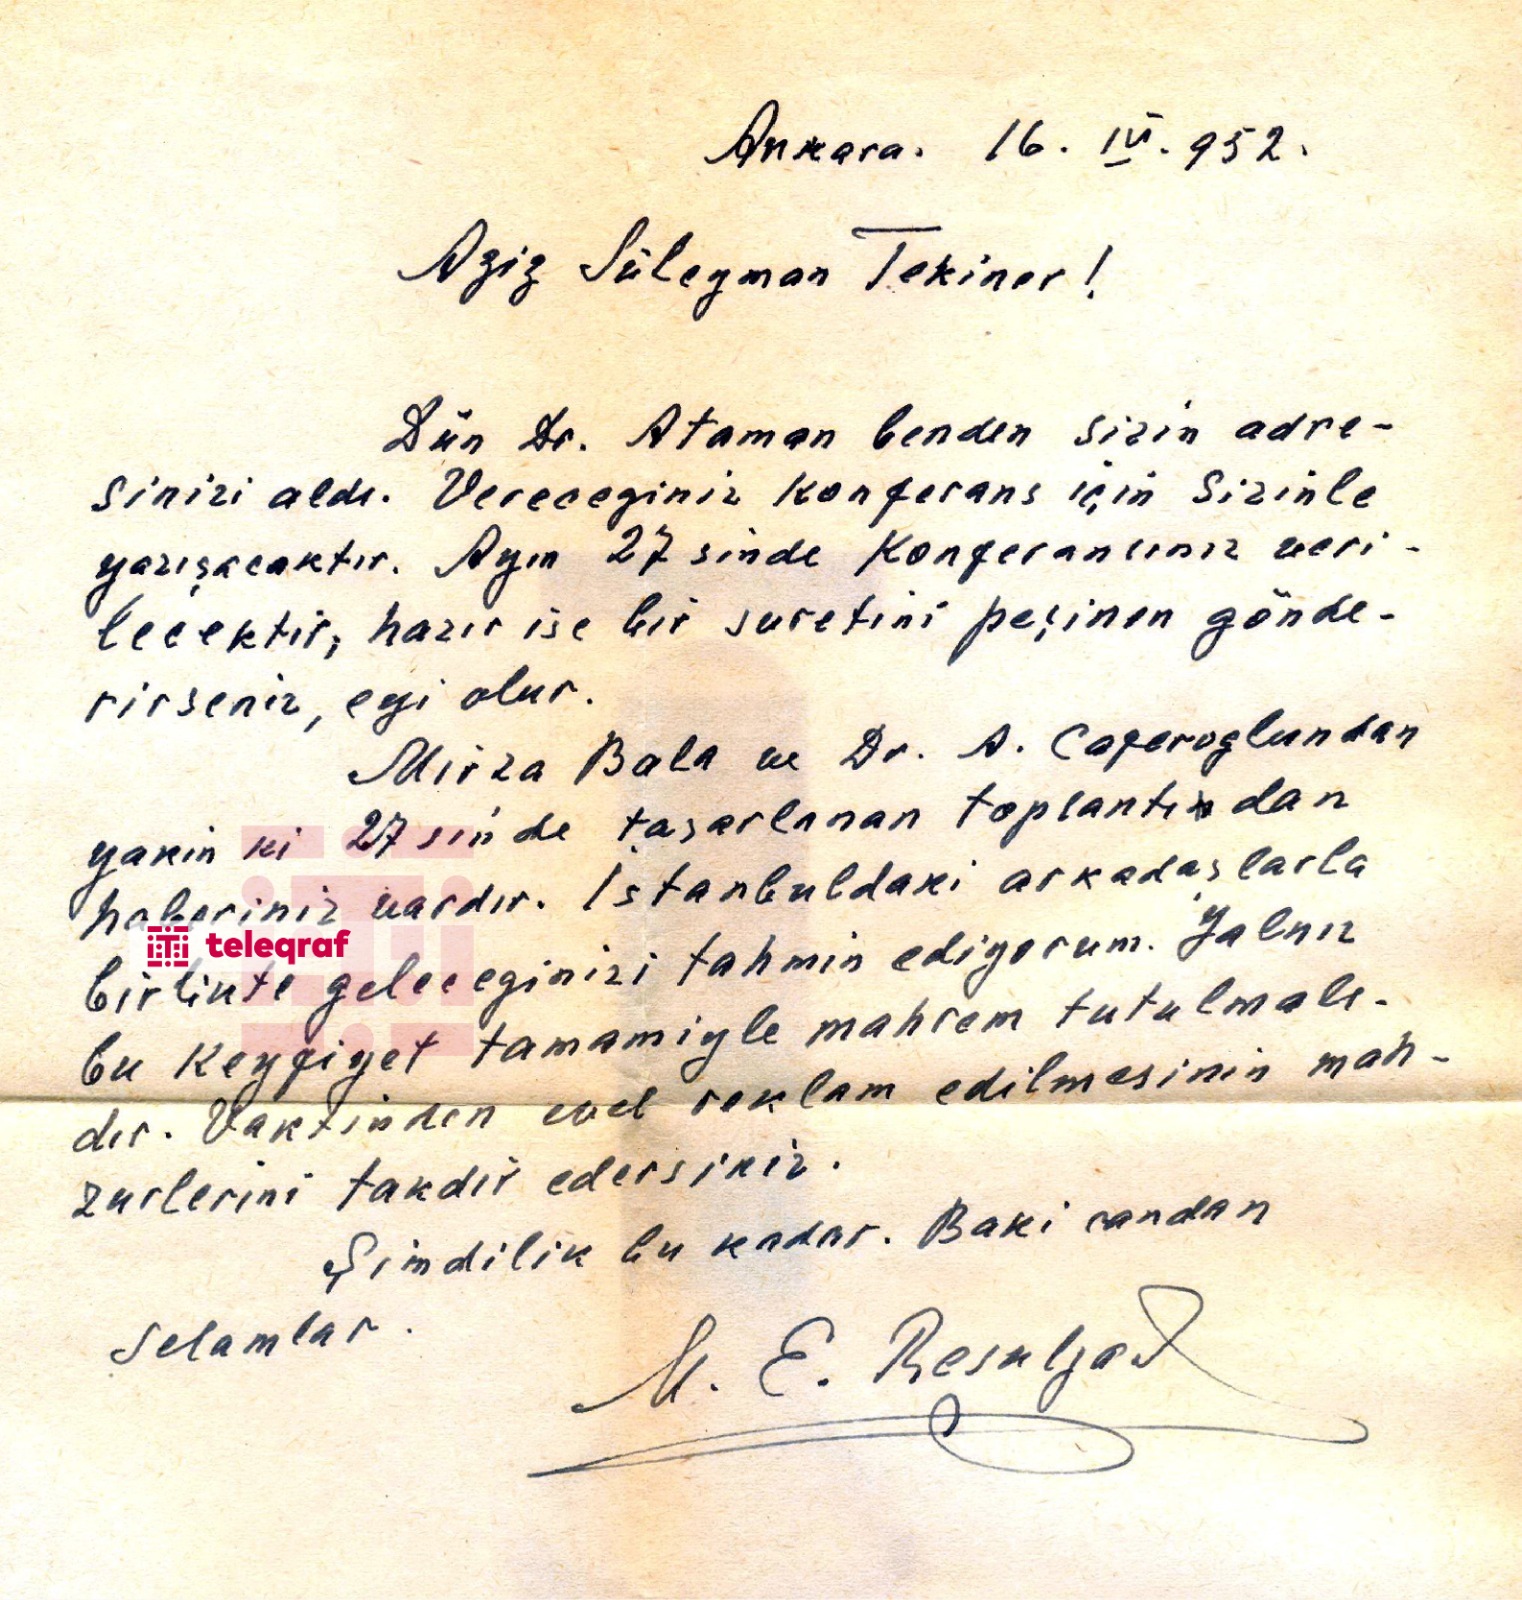 Ankara. 16. IV. 952.
Aziz Süleyman Tekiner!
Dün Dr. Ataman benden sizin adre-
sinizi aldı. Vereceginiz konferans için Sizinle
yazışacaktır. Ayın 27 sinde Konferansınız veri-
lecektir, hazır ise bir suretini peşinen gönde-
rirseniz, eyi olur.
Mirza Bala ve Dr. A. Caferoglundan
yakin ki 27 sinde taşarlanan toplantıdan
haberiniz vardır. İstanbuldaki arkadaşlarla
teleqraf
birlikte geleceginizi tahmin ediyorum. Yalnız
bu Keyfiyet tamamiyle mahrem tutulmalı-
dır. Vaktinden evel reklam edilmesinin mah-
zurlerini takdir edersiniz.
Şimdilik bu kadar. Baki candan
selamlar.
M. E. Resulzad